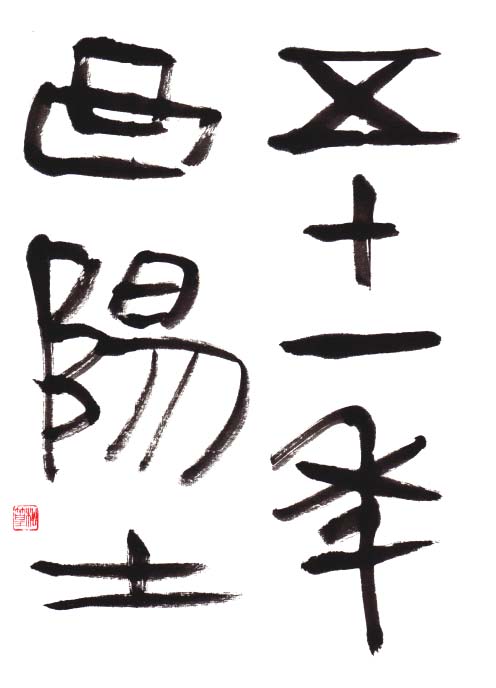 五十一年
曲陽士